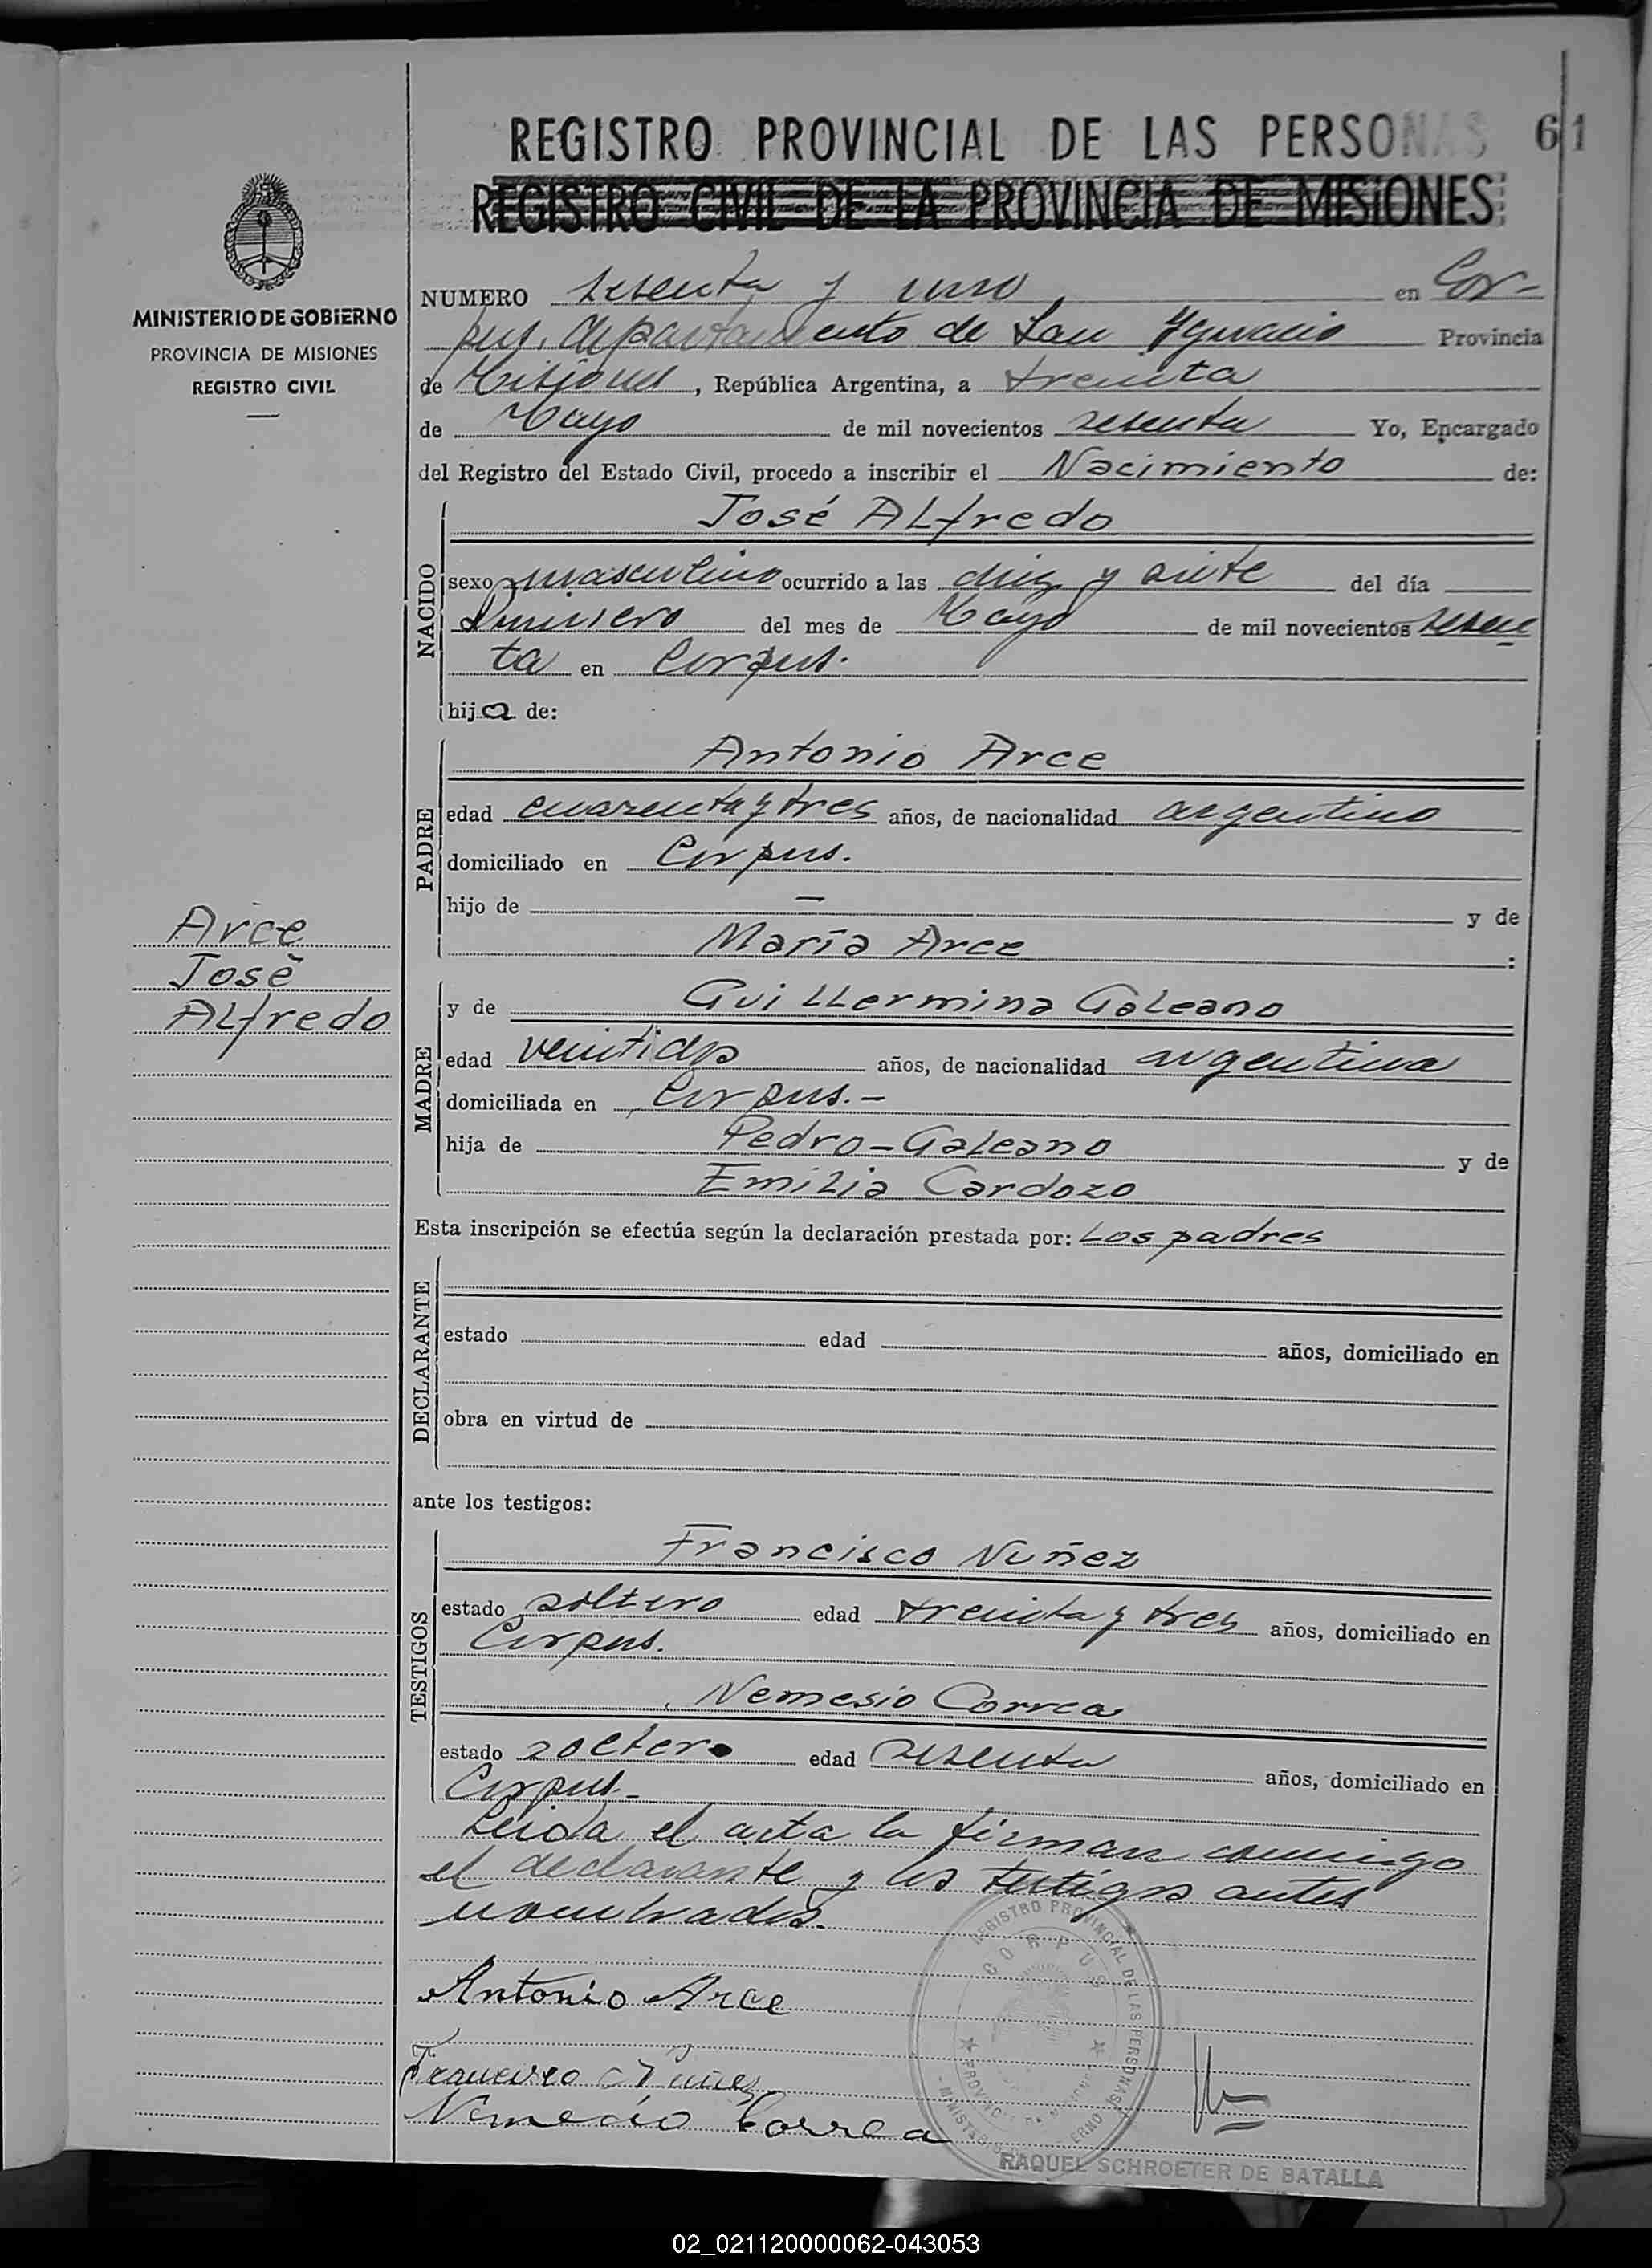 REGISTRO PROVINCIAL DE LAS PERSONAS 61
REGISTRO CIVIL DE LA PROVINCIA DE MISIONES
MINISTERIO DE GOBIERNO
PROVINCIA DE MISIONES
REGISTRO CIVIL
NUMERO sesenta y uno en Cor-
pus, departamento de San Ygnacio Provincia
de Misiones, República Argentina, a treinta
de Mayo de mil novecientos sesenta Yo, Encargado
del Registro del Estado Civil, procedo a inscribir el Nacimiento de:
NACIDO
José Alfredo
sexo masculino ocurrido a las diez y siete del día
primero del mes de Mayo de mil novecientos sesen
ta en Corpus.
hijo de:
PADRE
Antonio Arce
edad cuarenta y tres años, de nacionalidad argentino
domiciliado en Corpus.
hijo de — y de
María Arce :
Arce
José
Alfredo
MADRE
y de Guillermina Galeano
edad veintidos años, de nacionalidad argentina
domiciliada en Corpus.-
hija de Pedro-Galeano y de
Emilia Cardozo
Esta inscripción se efectúa según la declaración prestada por: Los padres
DECLARANTE
estado edad años, domiciliado en
obra en virtud de
ante los testigos:
TESTIGOS
Francisco Nuñez
estado soltero edad treinta y tres años, domiciliado en
Corpus.
Nemesio Correa
estado soltero edad sesenta años, domiciliado en
Corpus.-
Leida el acta la firman conmigo
el declarante y los testigos antes
nombrados.
Antonio Arce
Francisco Nuñez
Nemecio Correa
REGISTRO PROVINCIAL DE LAS PERSONAS
CORPUS
RAQUEL SCHROETER DE BATALLA
02_021120000062-043053